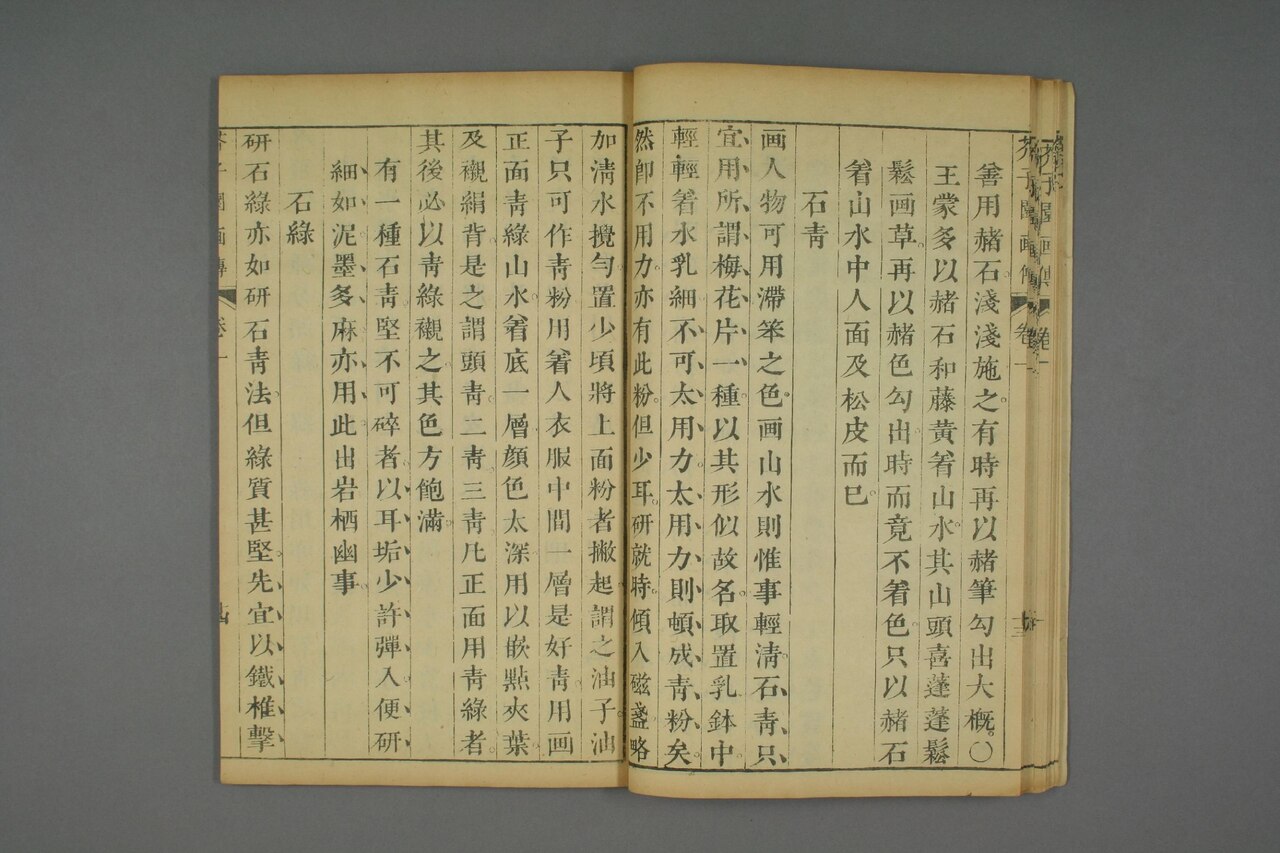 芥子園畫傳 卷一
善用赭石淺淺施之有時再以赭筆勾出大概〇
王蒙多以赭石和藤黃着山水其山頭喜蓬蓬鬆
鬆画草再以赭色勾出時而竟不着色只以赭石
着山水中人面及松皮而已
石靑
画人物可用滯笨之色画山水則惟事輕淸石靑只
宜用所謂梅花片一種以其形似故名取置乳鉢中
輕輕着水乳細不可太用力太用力則頓成靑粉矣
然卽不用力亦有此粉但少耳研就時傾入磁盞略
加淸水攪勻置少頃將上面粉者撇起謂之油子油
子只可作靑粉用着人衣服中間一層是好靑用画
正面靑綠山水着底一層顔色太深用以嵌㸃夾葉
及襯絹背是之謂頭靑二靑三靑凡正面用靑綠者
其後必以靑綠襯之其色方飽滿
有一種石靑堅不可碎者以耳垢少許彈入便研
細如泥墨多麻亦用此出岩栖幽事
石綠
研石綠亦如研石靑法但綠質甚堅先宜以鐵椎擊
芥子園画傳 卷一